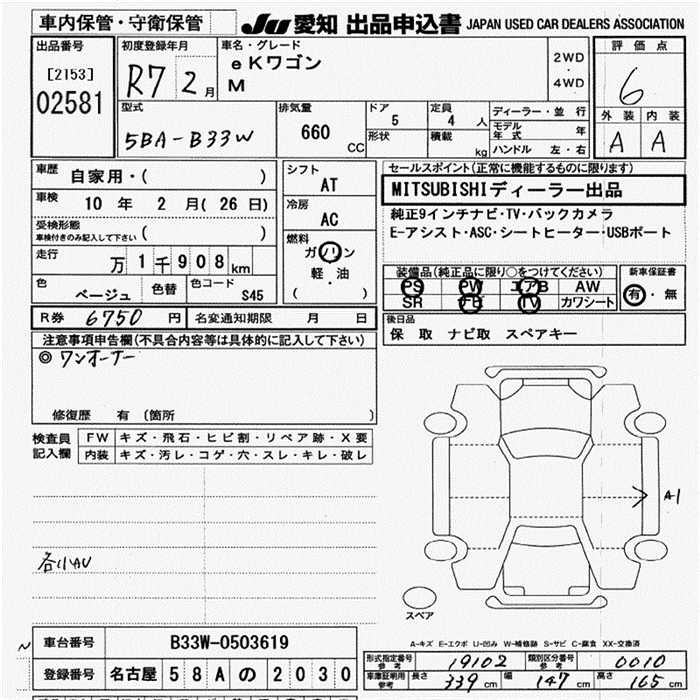 車内保管・守衛保管
JU 愛知 出品申込書 JAPAN USED CAR DEALERS ASSOCIATION
出品番号
[2153]
02581
初度登録年月
R7 2月
車名・グレード
eKワゴン
M
2WD
・
4WD
評価点
6
外装 内装
A A
型式
5BA-B33W
排気量
660 CC
ドア
5
形状
定員
4 人
積載
kg
ディーラー・並行
モデル年式 年
ハンドル 左・右
車歴 自家用・( )
車検 10 年 2 月( 26 日)
受検形態
車検付きのみ記入して下さい ( )
走行 万 1 千 9 0 8 km
色 ベージュ
色替
色コード S45
シフト
AT
冷房
AC
燃料
ガソリン
軽・油
( )
セールスポイント(正常に機能するものに限ります)
MITSUBISHIディーラー出品
純正9インチナビ・TV・バックカメラ
E-アシスト・ASC・シートヒーター・USBポート
装備品(純正品に限り○をつけてください)
PS PW エアB AW
SR TV カワシート
新車保証書
有・無
R券 6750 円 名変通知期限 月 日
後日品
保 取 ナビ取 スペアキー
注意事項申告欄(不具合内容等は具体的に記入して下さい)
◎ ワンオーナー
修復歴 有 (箇所 )
検査員記入欄
FW キズ・飛石・ヒビ割・リペア跡・X要
内装 キズ・汚レ・コゲ・穴・スレ・キレ・破レ
各小AU
A1
スペア
A-キズ E-エクボ U-凹み W-補修跡 S-サビ C-腐食 XX-交換済
車台番号 B33W-0503619
登録番号 名古屋 58A の 2030
形式指定番号 参考 19102 類別区分番号 参考 0010
車庫証明用 参考 長さ 339 cm 幅 147 cm 高さ 165 cm